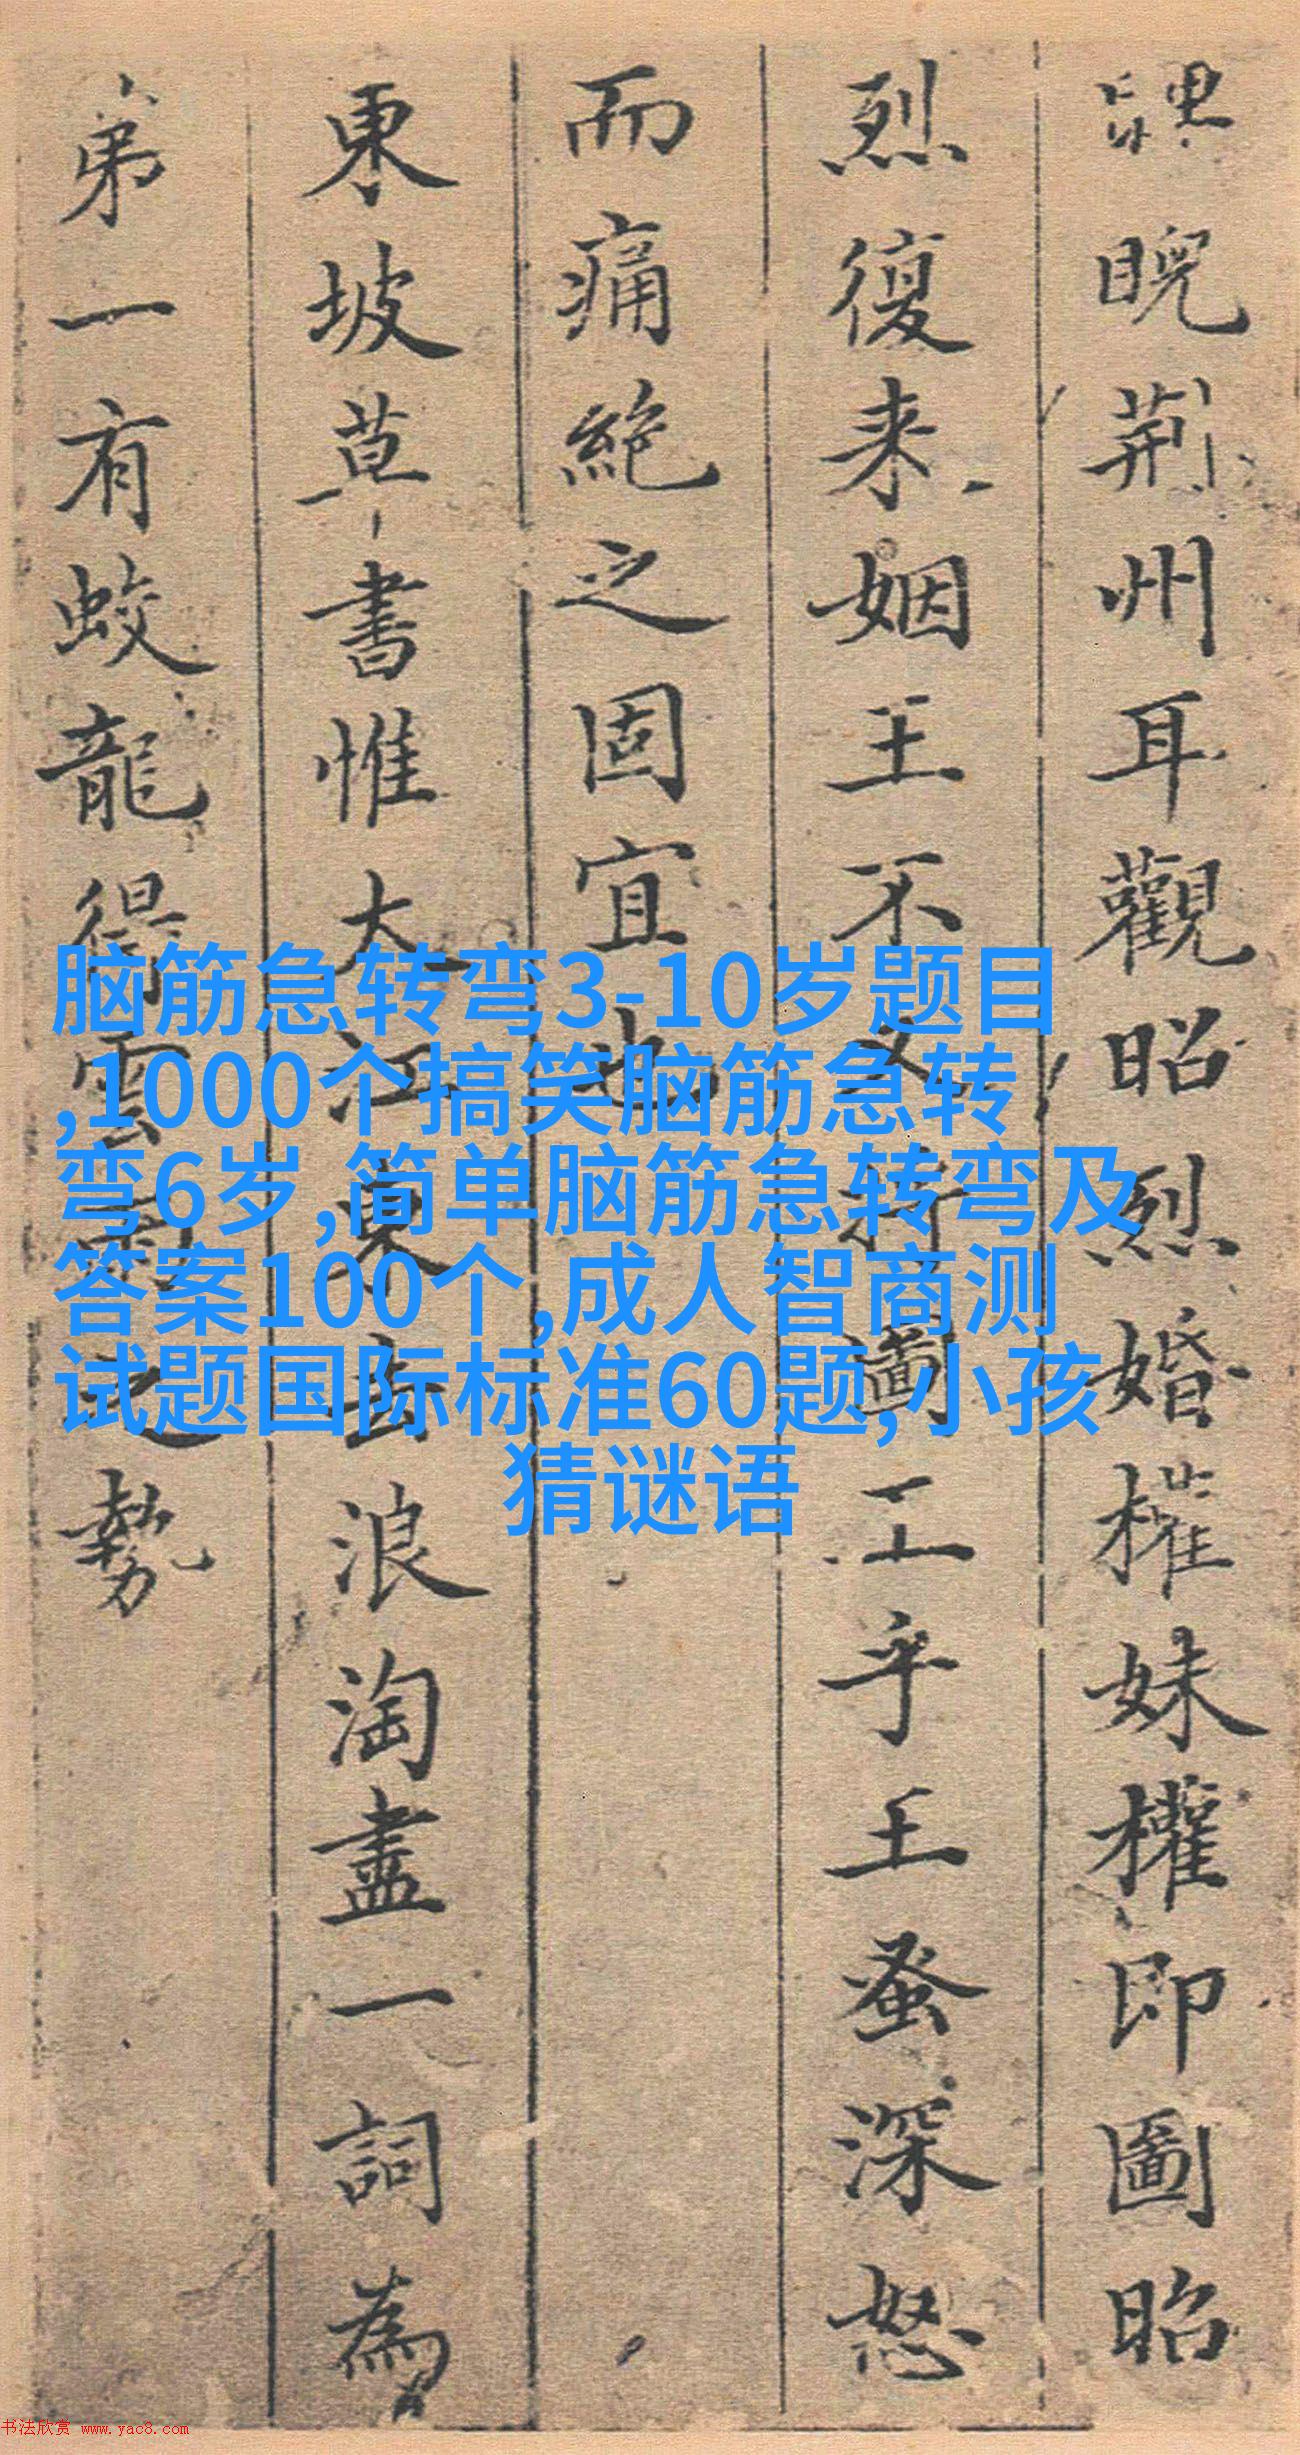 睨荆州耳觀昭烈婚權妹權即圖昭
烈復来姻王不圖工乎王蚤深怒
而痛絶之固宜也
東坡草書惟大江東去浪淘盡一詞為
弟一有蛟龍得雲雨之勢
脑筋急转弯3-10岁题目
,1000个搞笑脑筋急转
弯6岁,简单脑筋急转弯及
答案100个,成人智商测
试题国际标准60题,小孩
猜谜语
书法欣赏 www.yac8.com